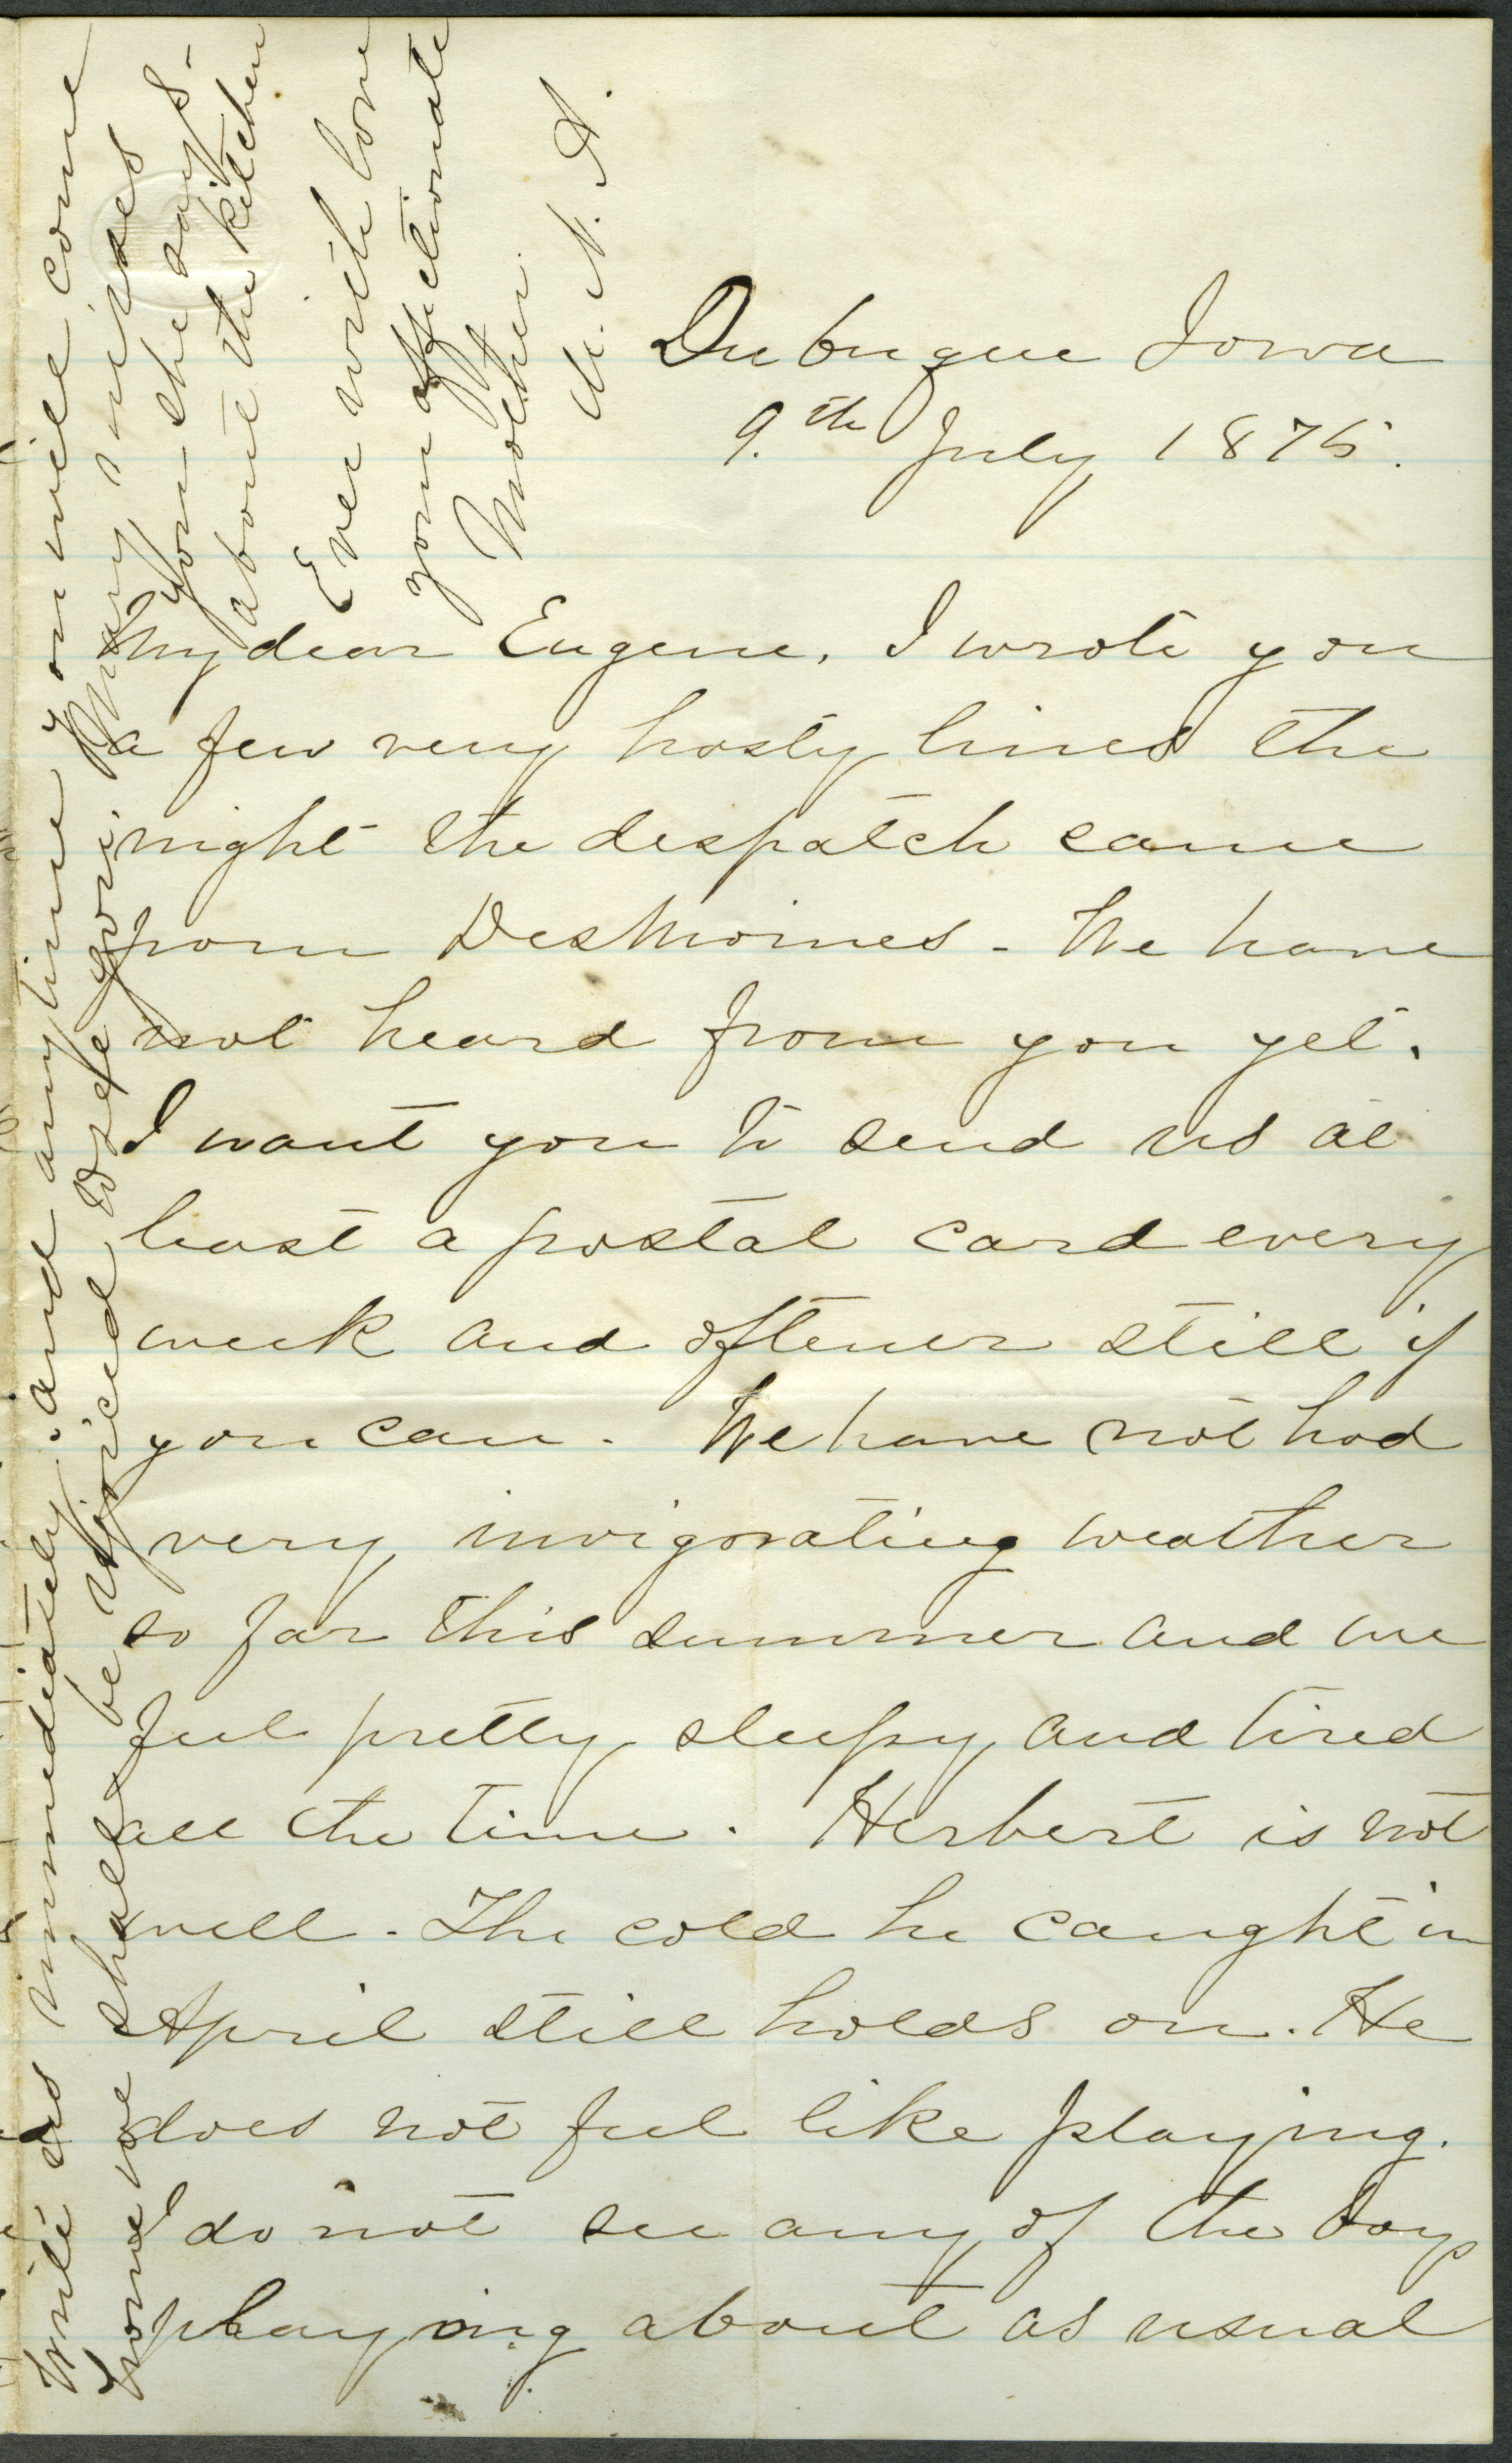 Dubuque Iowa
9.th July 1875.
My dear Eugene, I wrote you
a few very hasty lines the
night the despatch came
from DesMoines - We have
not heard from you yet.
I want you to send us at
least a postal card every
week and oftener still if
you can. We have not had
very invigorating weather
so far this summer and we
feel pretty sleepy and tired
all the time. Herbert is not
well. The cold he caught in
April still holds on. He
does not feel like playing.
I do not see any of the boys
playing about as usual
Write us immediately. and any time you will come
home we shall be rejoiced to see you. Mary misses
you she says -
about the kitchen
Ever with love
your affectionate
Mother.